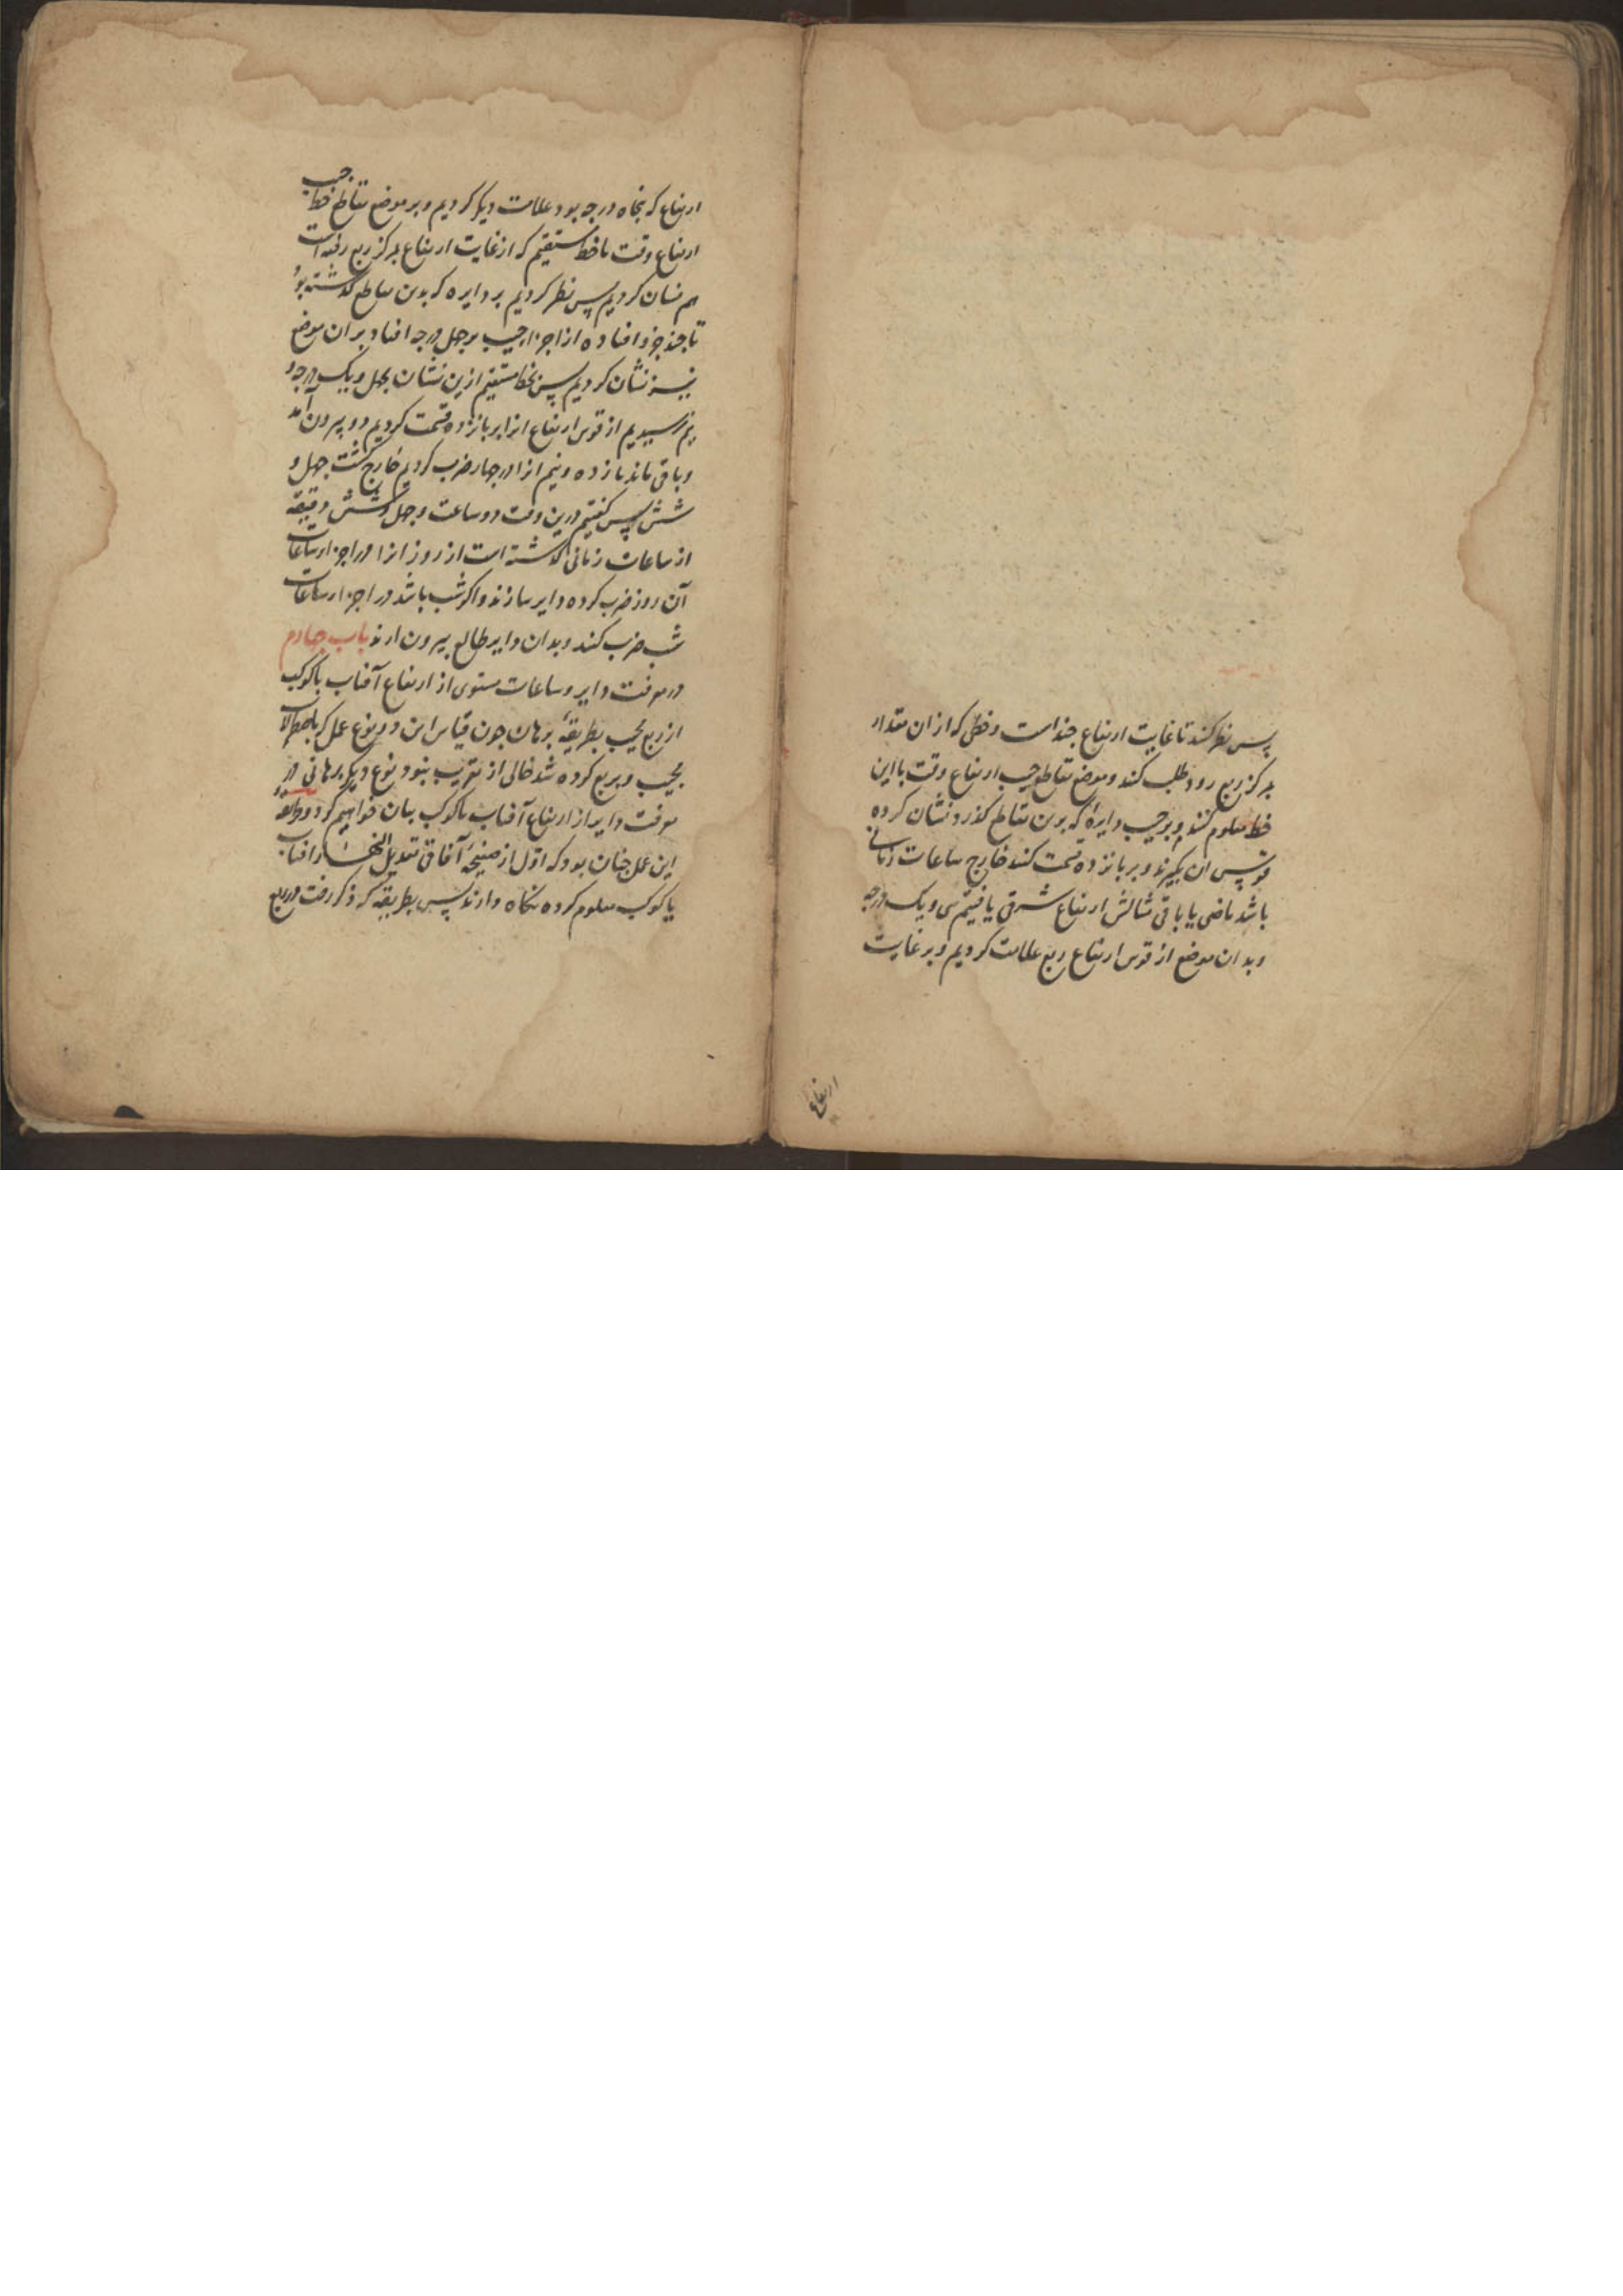 پس نظر کند تا غایت ارتفاع جندست و خطی که از ان مقدار
بمرکز ربع رود طلب کند و موضع تقاطع جیب ارتفاع وقت با این
خط معلوم کنند و بر جیب دایرهٔ که بدن تقاطع کذرد نشان کرده
قوس ان بکیرند و بر بانزده قسمت کنند خارج ساعات زمانی
باشد ماضی یا باقی مثالش ارتفاع شرقی یافتیم سی و یک درجه
و بدان موضع از قوس ارتفاع ربع علامت کردیم و بر غایت
ارتفاع
ارتفاع که بنجاه درجه بود علامت دیکر کردیم و بر موضع تقاطع خط جیب
ارتفاع وقت با خط مستقیم که از غایت ارتفاع بمرکز ربع رفته است
هم نشان کردیم پس نظر کردیم بر دایره که بدین تقاطع کذشته بود
تا جند جزو افتاده از اجزاء جیب بر جهل درجه افتاد بر ان موضع
نیز نشان کردیم پس بخط مستقیم ازین نشان بجهل و یک درجه و
نیم رسیدیم از قوس ارتفاع انرا بر بانزده قسمت کردیم دو بیرون آمد
و باقی ماند یازده و نیم انرا در جهار ضرب کردیم خارج کشت جهل و
شش پس کفتیم درین وقت دو ساعت و جهل و شش دقیقه
از ساعات زمانی کذشته است از روز انرا در اجزاء ساعات
آن روز ضرب کرده دایر سازند و اکر شب باشد در اجزاء ساعات
شب ضرب کنند و بدان دایر طالع بیرون ارند باب جهارم
در معرفت دایر و ساعات مستوی از ارتفاع آفتاب یا کوکب
از ربع مجیب بطریقهٔ برهان جون قیاس این دو نوع عمل که باصطرلاب
مجیب و بربع کرده شد خالی از تقریب نبود نوع دیکر برهانی در
معرفت دایر از ارتفاع آفتاب یا کوکب بیان خواهیم کرد و طریقهٔ
این عمل جنان بود که اول از صفیحهٔ آفاقی تعدیل النهار افتاب
یا کوکب معلوم کرده نکاه دارند پس بطریقه که ذکر رفت در ربع